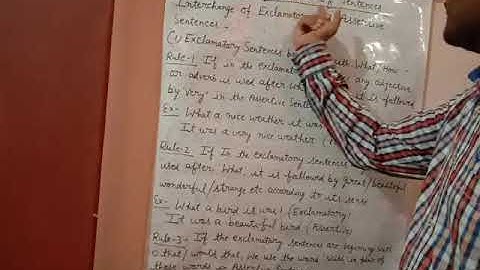 of Sentences
Interchange of Exclamatory Assertive
Sentences -
(1) Exclamatory Sentences with What, How -
Rule-1. If in the exclamatory any adjective
or adverb is used after it is followed
by 'very' in the Assertive Sentence
Ex- What a nice weather it was
It was a very nice weather
Rule-2. If In the exclamatory sentences
used after 'What', it is followed by great/beautiful
wonderful/strange etc according to its sense
Ex- What a bird is was! (Exclamatory)
It was a beautiful bird (Assertive)
Rule-3- If the exclamatory sentences are beginning with
O that/would that, we use the word wish in place of
these words in Assertive